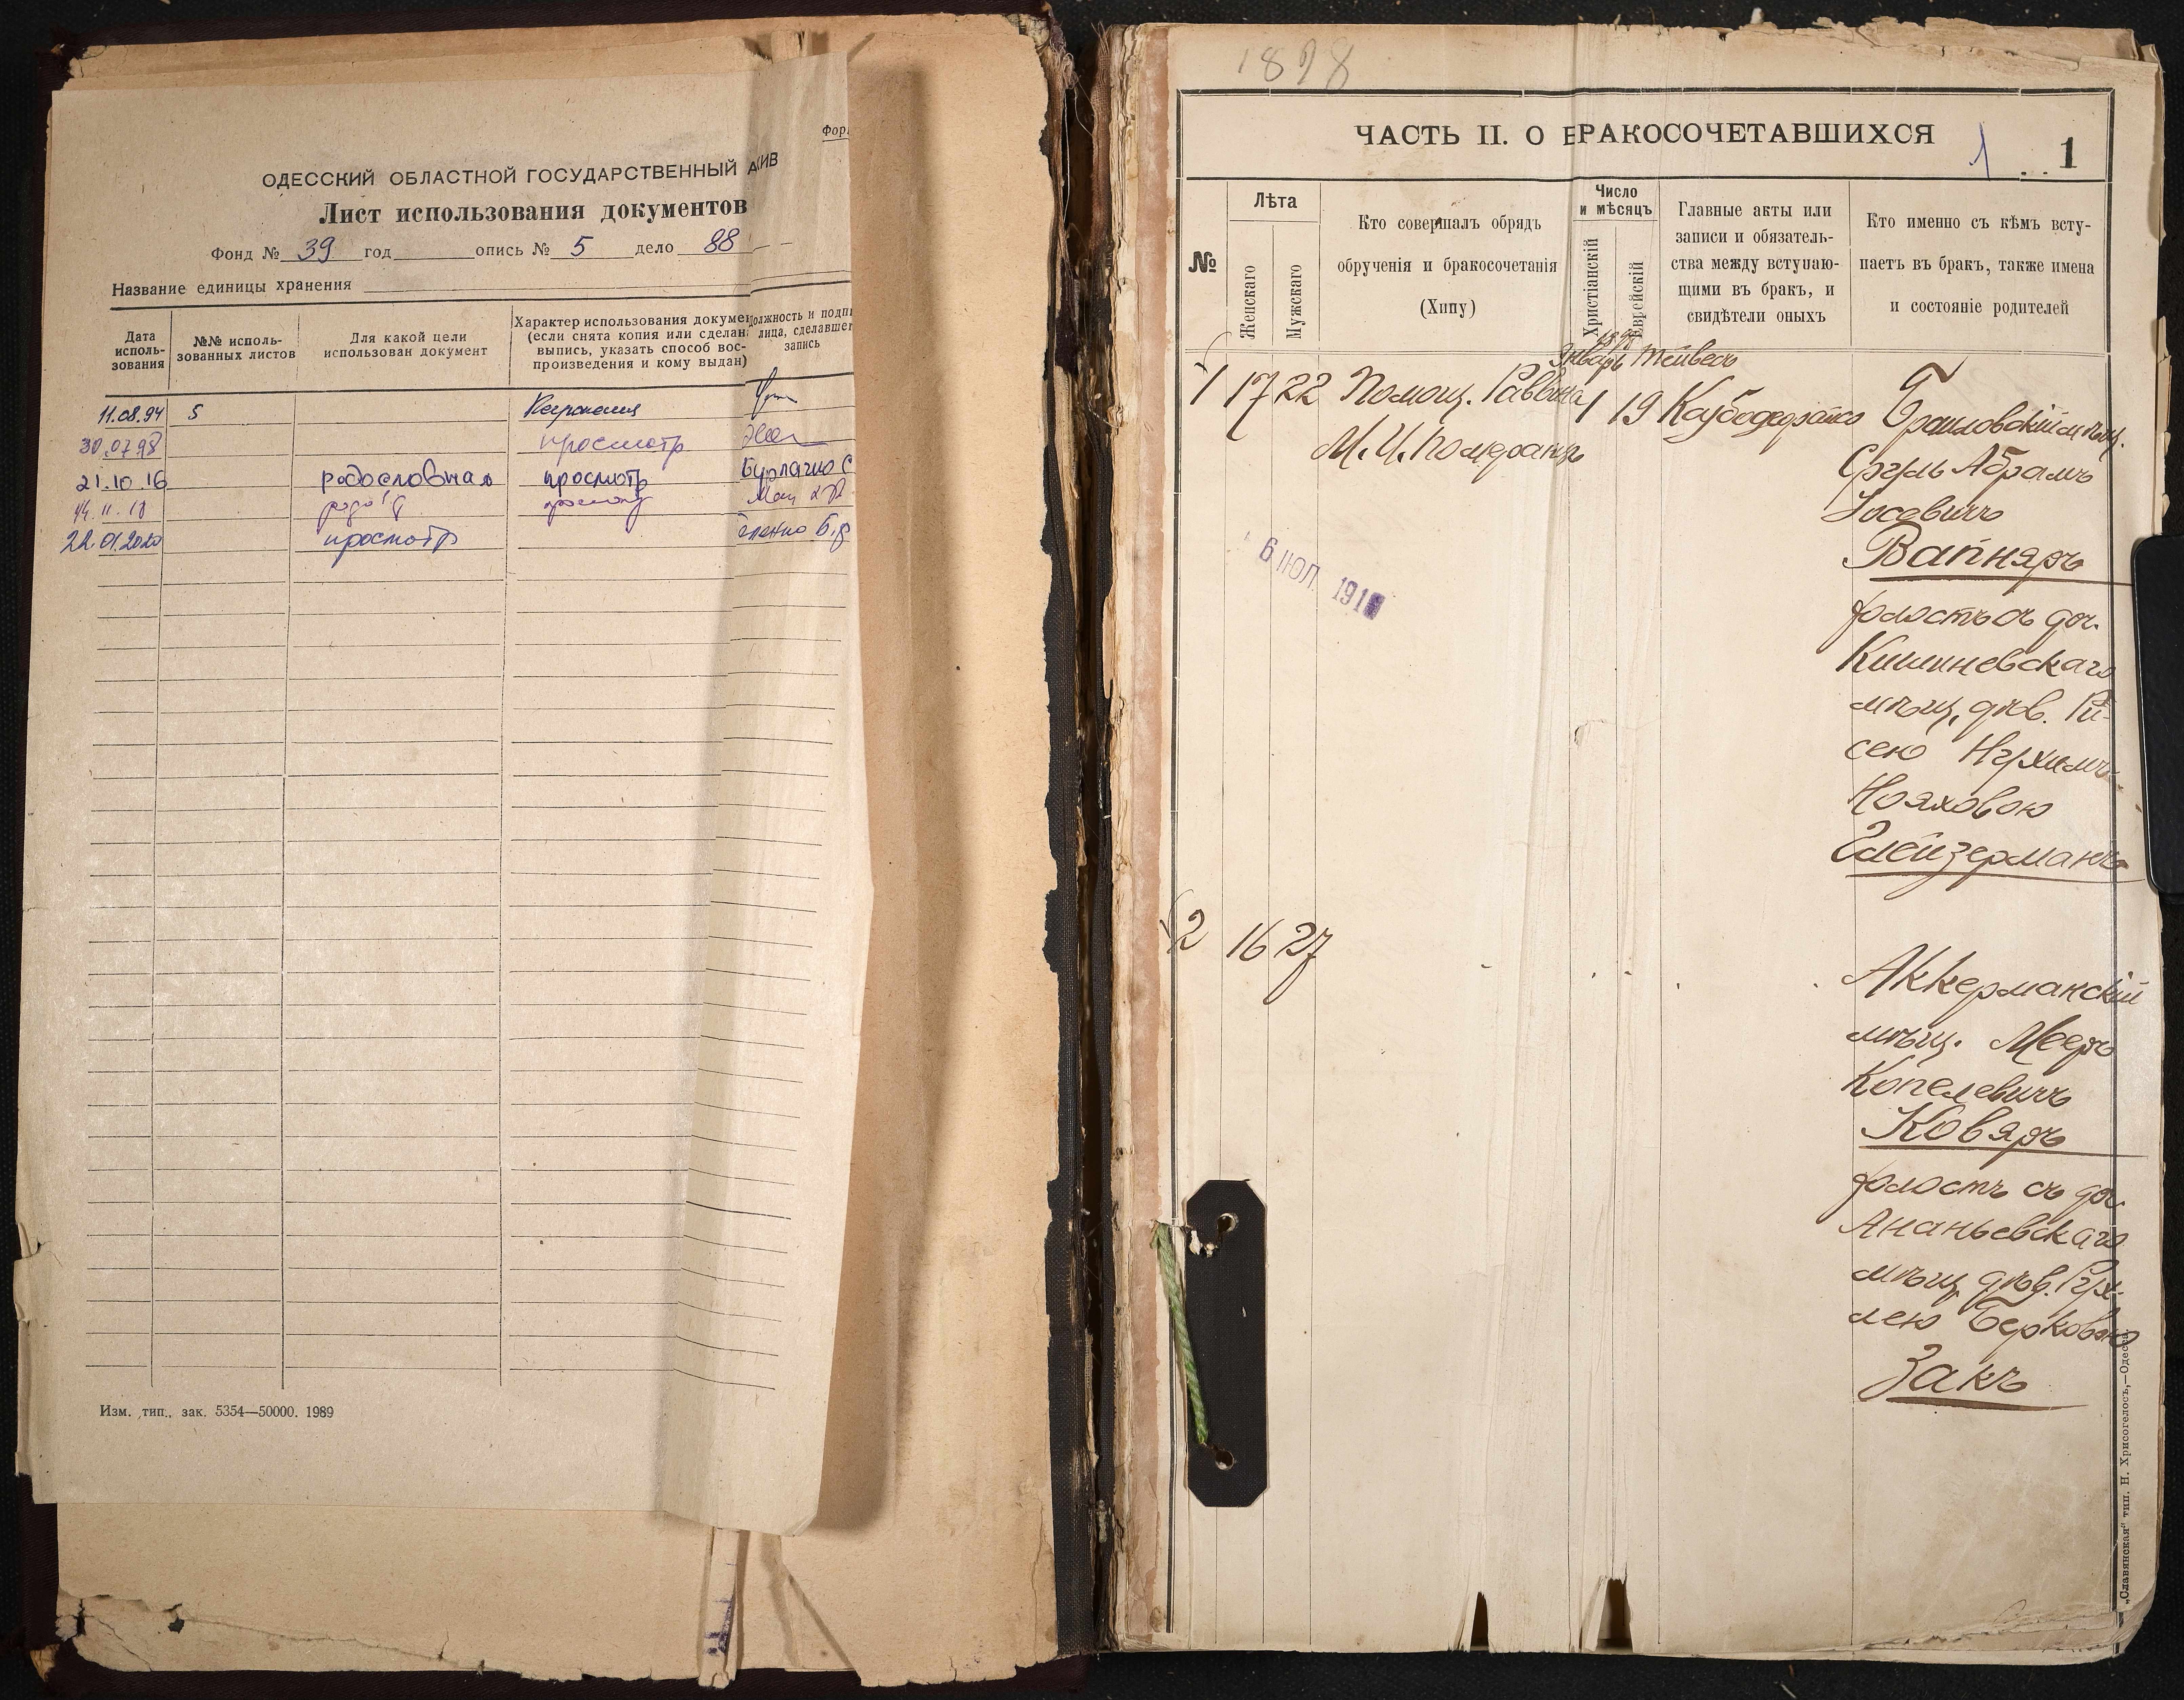 ОДЕССКИЙ ОБЛАСТНОЙ ГОСУДАРСТВЕННЫЙ
Лист использования документов
Фонд № 39 год опись № 5 дело 88
Название единицы хранения
Дата исполь-зования
№№ исполь-зованных листов
Для какой цели использован документ
Характер использования докумен
(если снята копия или сделан
выпись, указать способ вос-
произведения и кому выдан)
лица, сделавшег
запись
11.08.94 5
30.07.98 просмотр
21.10.16 родословная просмотр
14.11.18
22.01.2020 просмотр
Изм. тип., зак. 5354—50000. 1989
1898
ЧАСТЬ II. О БРАКОСОЧЕТАВШИХСЯ
1
1
№
Лѣта
Женскаго
Мужскаго
Кто совершалъ обрядъ
обрученія и бракосочетанія
(Хипу)
Число
и мѣсяцъ
Христіанскій
Еврейскій
Главные акты или
записи и обязатель-
ства между вступаю-
щими въ бракъ, и
свидѣтели оныхъ
Кто именно съ кѣмъ всту-
паетъ въ бракъ, также имена
и состояніе родителей
1898
Январь Тейвесъ
1 17 22 Помощ. Раввина 1 19
М. И. Померанцъ
Браиловскій мѣщ.
Сруль Абрамъ
Іосевичъ
Вайняръ
холостъ съ доч.
Кишиневскаго
мѣщ, дѣв. Ри-
сею Нухимъ-
Нояховою
Глейзерманъ
6 ІЮЛ. 191
2 16 27
Аккерманскій
мѣщ. Мееръ
Копелевичъ
Коваръ
холостъ съ доч
Ананьевскаго
мѣщ дѣв. Рух-
лею Берковою
Закъ
„Славянская“ тип. Н. Хрисогелосъ,—Одесса.